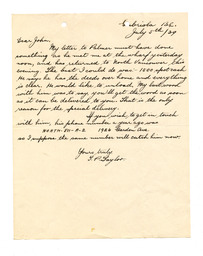 July 5th/29
Dear John,
My letter to Palmer must have done
something as he met me at the wharf yesterday
noon, and has returned to North Vancouver this
evening. The boat I could do was 1500 spot cash
He says he has the deeds over home and everything
is clear. He would like to unload. My bookwork
with him was to say you'll get the word as soon
as it can be delivered to you. That is the only
reason for the special delivery.
If you wish to get in touch
with him, his phone number a year ago was
1926
so I suppose the same number will catch him now.
Yours truly
Taylor